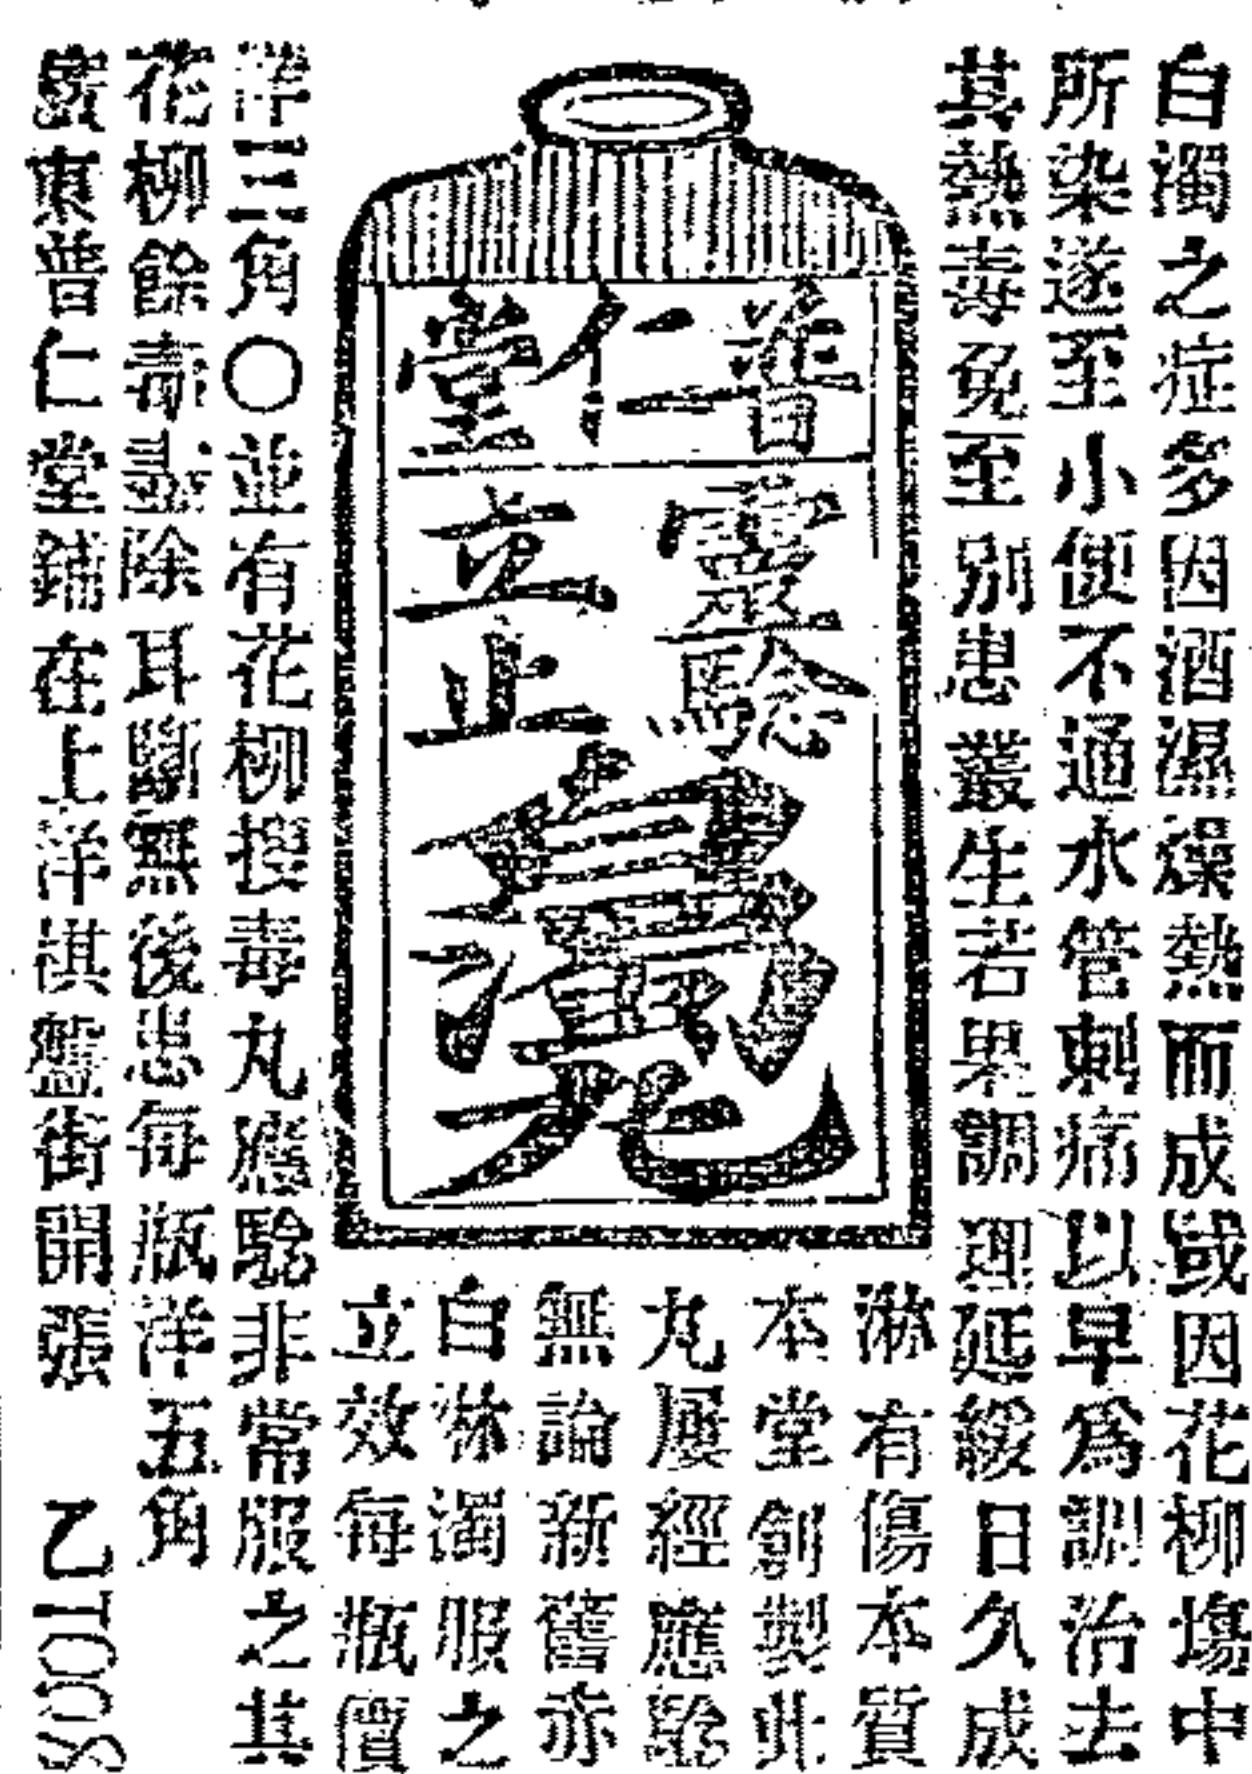 白濁之症多因酒濕燥熱而成或因花柳塲中
所染遂至小便不通水管刺痛以早爲調治去
其熱毒免至別患叢生若果調理延緩日久成
淋有傷本質
本堂創製此
丸屢經應騐
無論新舊赤
白淋濁服之
立效每瓶價
普仁堂
靈騐
立止
濁丸
洋三角〇並有花柳搜毒丸應騐非常服之其
花柳餘毒盡除耳斷無後患每瓶洋五角
廣東普仁堂鋪在上洋棋盤街開張 乙1008